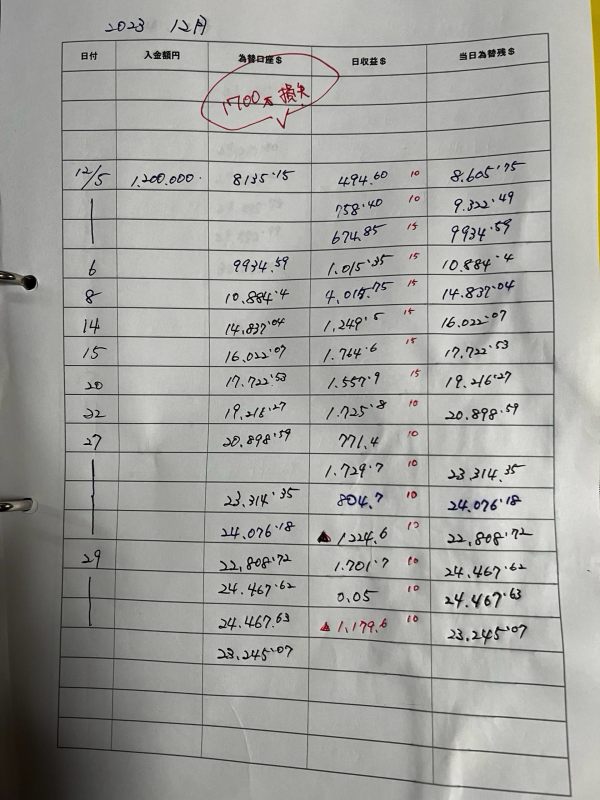 2023 12月
日付 入金額円 為替口座$ 日収益$ 当日為替残$
1700万 損失
12/5 1,200.000. 8135.15 494.60 10 8.605.75
758.40 10 9.322.49
674.85 15 9934.59
6 9934.59 1.015.35 15 10.884.4
8 10.884.4 4,015.75 15 14.837.04
14 14.837.04 1,249.5 15 16.022.07
15 16.022.07 1.764.6 15 17.722.53
20 17.722.53 1.557.9 15 19.216.27
22 19.216.27 1.725.8 10 20.898.59
27 20.898.59 771.4 10
1.729.7 10 23.314.35
23.314.35 804.7 10 24.076.18
24.076.18 ▲1224.6 10 22,808.72
29 22,808.72 1.701.7 10 24.467.62
24.467.62 0.05 10 24.467.63
24.467.63 ▲1,179.6 10 23.245.07
23.245.07